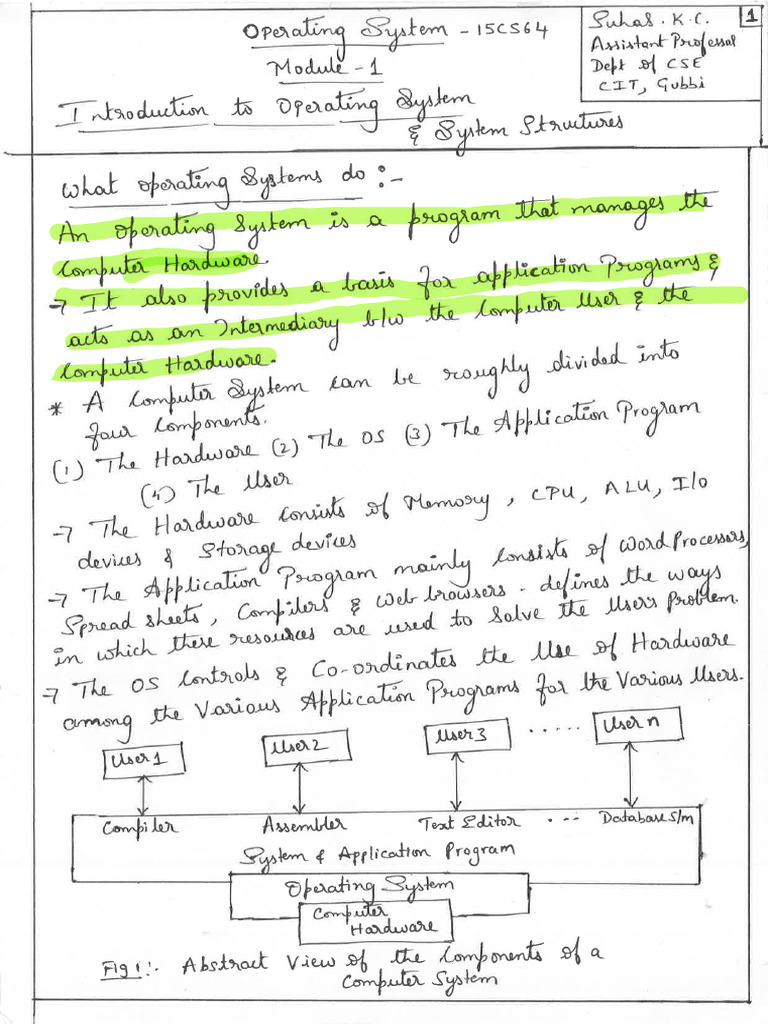 Operating System - 15CS64
Module - 1
Introduction to Operating System
& System Structures
Suhas. K. C.
Assistant Professor
Dept of CSE
CIT, Gubbi
1
What operating Systems do :-
An operating System is a program that manages the
Computer Hardware.
→ It also provides a basis for application Programs &
acts as an Intermediary b/w the Computer User & the
Computer Hardware.
* A Computer System can be roughly divided into
four Components.
(1) The Hardware (2) The OS (3) The Application Program
(4) The User
→ The Hardware Consists of Memory, CPU, ALU, I/O
devices & Storage devices
→ The Application Program mainly Consists of Word Processors,
Spread sheets, Compilers & Web browsers - defines the ways
in which these resources are used to Solve the Users Problem.
→ The OS Controls & Co-ordinates the Use of Hardware
among the Various Application Programs for the Various Users.
User 1 User 2 User 3 ..... User n
Compiler Assembler Text Editor .... Database S/m
System & Application Program
Operating System
Computer
Hardware
Fig 1:- Abstract View of the Components of a
Computer System